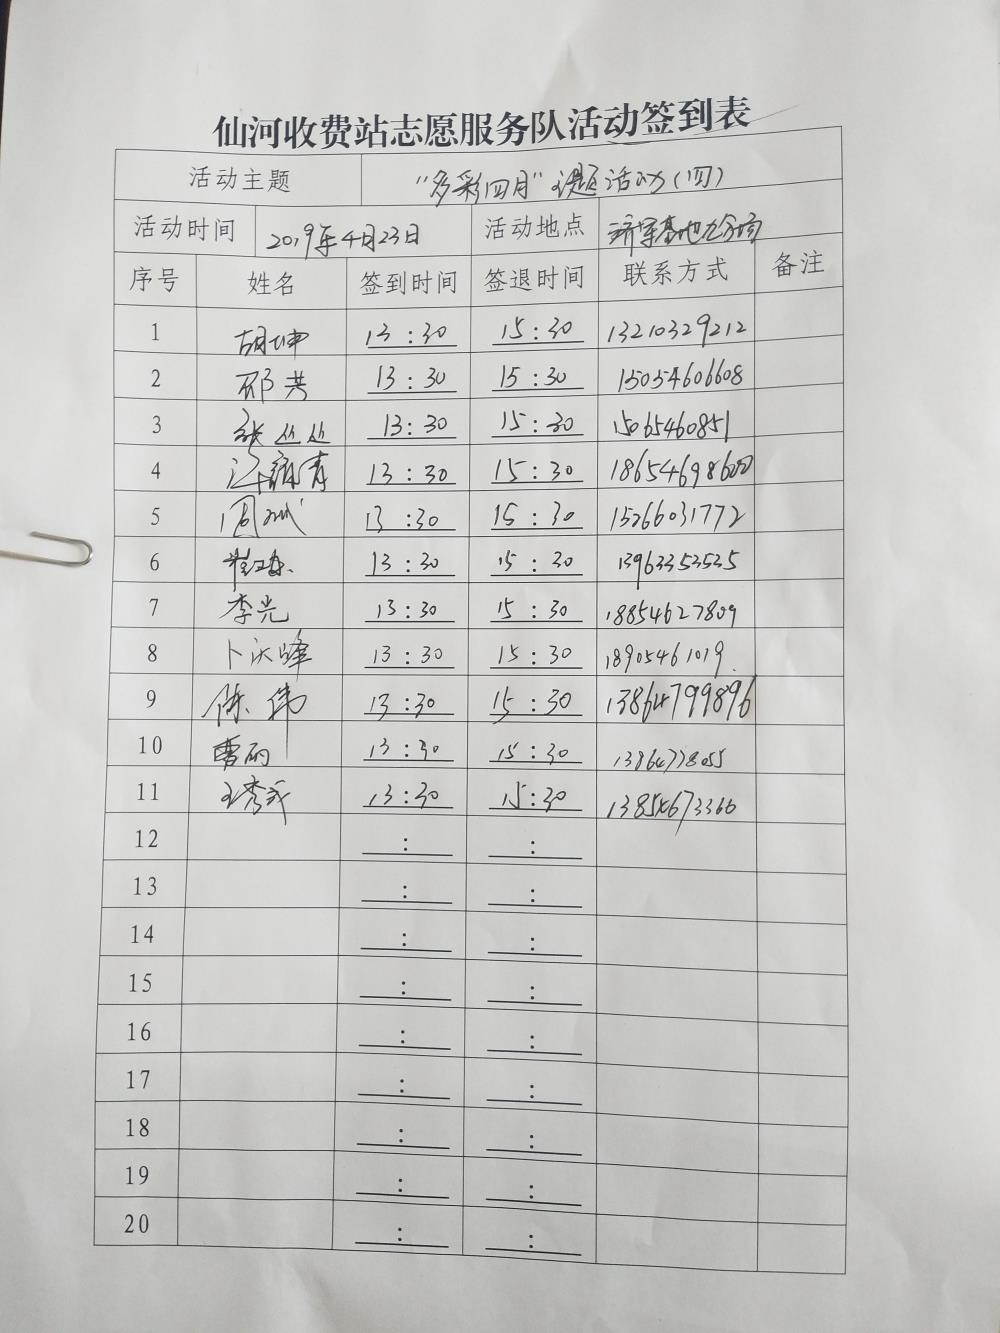 仙河收费站志愿服务队活动签到表
活动主题 “多彩四月”主题活动(四)
活动时间 2019年4月23日 活动地点 济军基地七分场
序号 姓名 签到时间 签退时间 联系方式 备注
1 胡坤 13:30 15:30 13210329212
2 邵共 13:30 15:30 15054606608
3 张丛丛 13:30 15:30 15065460851
4 13:30 15:30 18654698600
5 周斌 13:30 15:30 15266031772
6 13:30 15:30 13963353535
7 李光 13:30 15:30 18854627809
8 卜沃峰 13:30 15:30 18905461019
9 陈伟 13:30 15:30 13864799896
10 曹丽 13:30 15:30 13864778055
11 王秀武 13:30 15:30 13854673366
12 : :
13 : :
14 : :
15 : :
16 : :
17 : :
18 : :
19 : :
20 : :